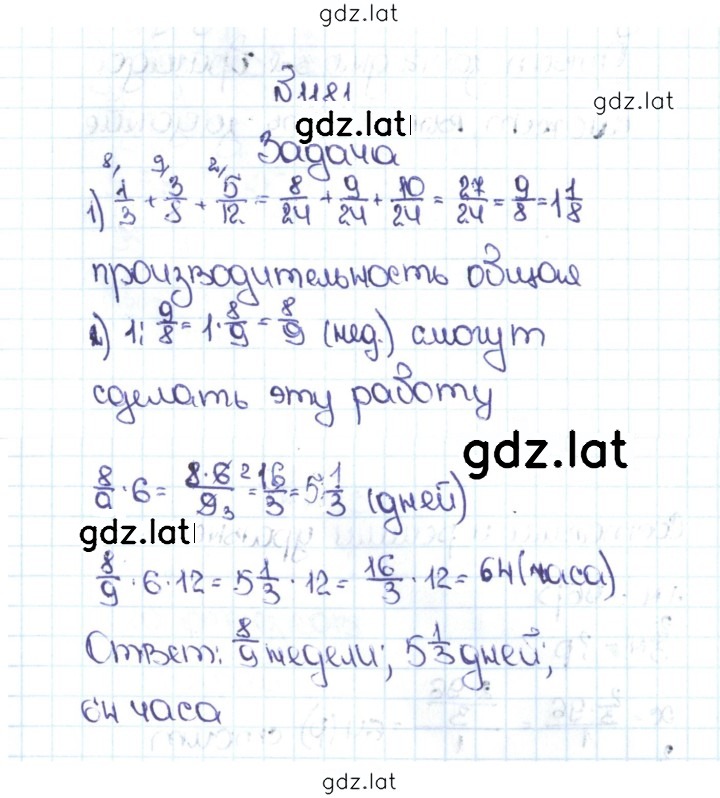 gdz.lat
№1181
gdz.lat
gdz.lat
Задача
8, 9, 2,
1) 1/3 + 3/8 + 5/12 = 8/24 + 9/24 + 10/24 = 27/24 = 9/8 = 1 1/8
производительность общая
2) 1 : 9/8 = 1 · 8/9 = 8/9 (нед.) смогут
сделать эту работу
gdz.lat
8/9 · 6 = 8·6 2/9 3 = 16/3 = 5 1/3 (дней)
gdz.lat
8/9 · 6 · 12 = 5 1/3 · 12 = 16/3 · 12 = 64 (часа)
Ответ: 8/9 недели; 5 1/3 дней;
64 часа
gdz.lat